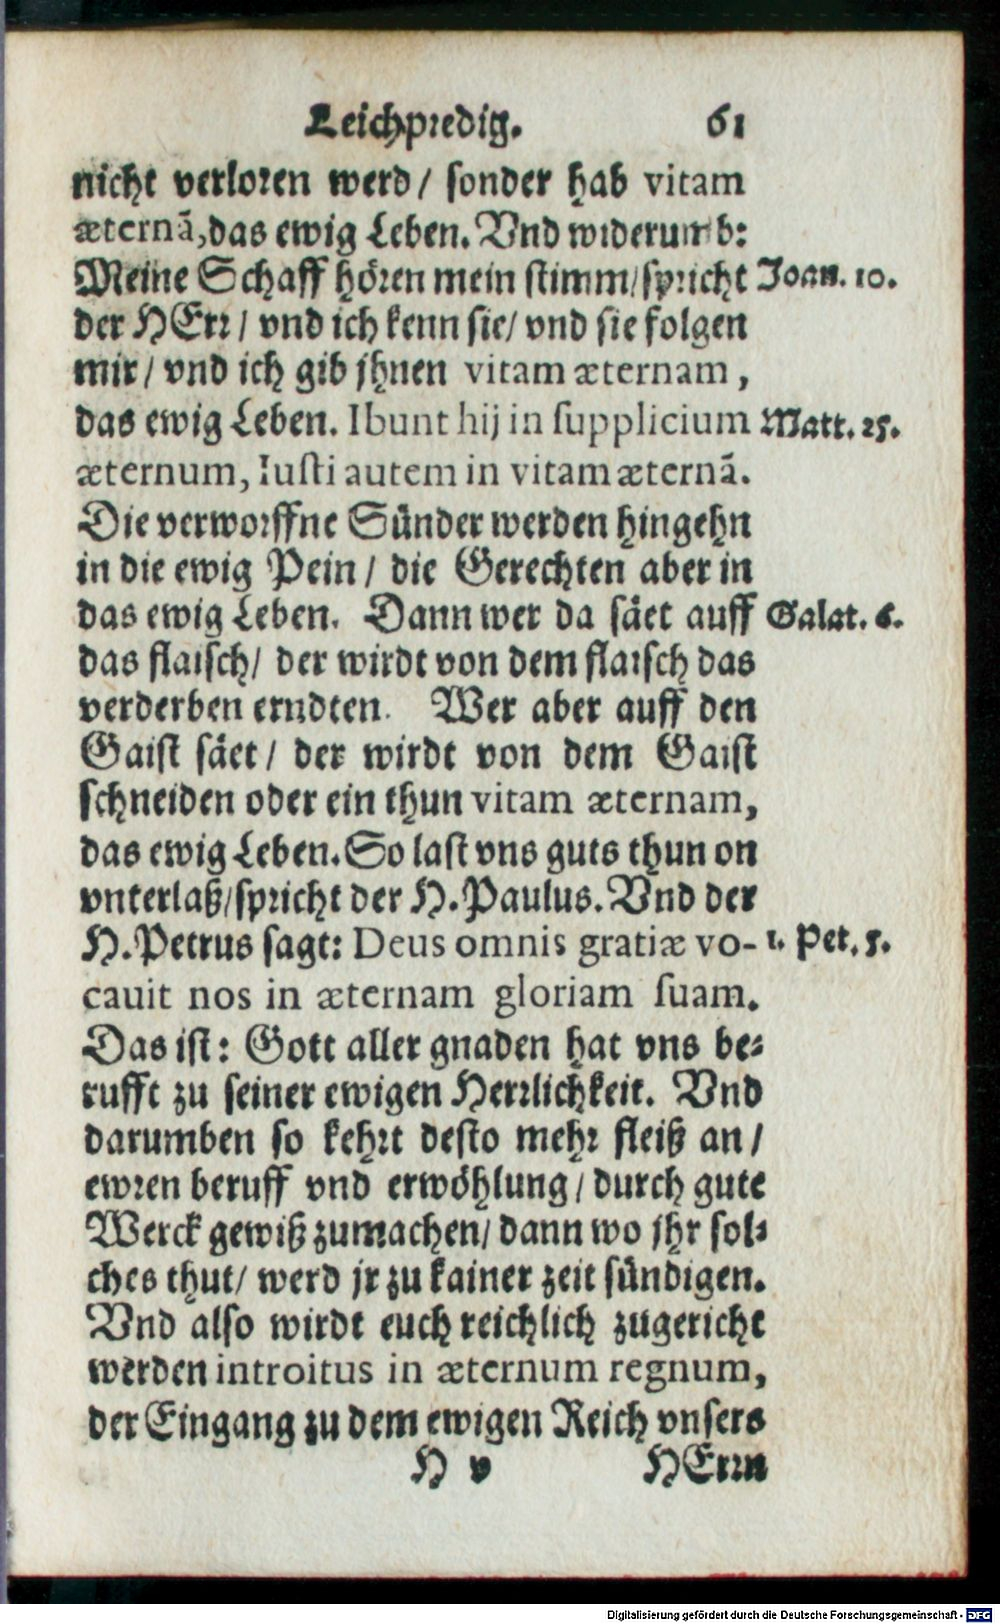 Leichpredig. 61
nicht verloren werd / sonder hab vitam
æternã, das ewig Leben. Vnd widerumb:
Meine Schaff hören mein stimm / spricht Joan. 10.
der HErr / vnd ich kenn sie / vnd sie folgen
mir / vnd ich gib jhnen vitam æternam,
das ewig Leben. Ibunt hij in supplicium Matt. 25.
æternum, Iusti autem in vitam æternã.
Die verworffne Sünder werden hingehn
in die ewig Pein / die Gerechten aber in
das ewig Leben. Dann wer da säet auff Galat. 6.
das flaisch / der wirdt von dem flaisch das
verderben erndten. Wer aber auff den
Gaist säet / der wirdt von dem Gaist
schneiden oder ein thun vitam æternam,
das ewig Leben. So last vns guts thun on
vnterlaß / spricht der H. Paulus. Vnd der
H. Petrus sagt: Deus omnis gratiæ vo- 1. Pet. 5.
cauit nos in æternam gloriam suam.
Das ist: Gott aller gnaden hat vns be-
rufft zu seiner ewigen Herrlichkeit. Vnd
darumben so kehrt desto mehr fleiß an /
ewren beruff vnd erwöhlung / durch gute
Werck gewiß zumachen / dann wo jhr sol-
ches thut / werd jr zu kainer zeit sündigen.
Vnd also wirdt euch reichlich zugericht
werden introitus in æternum regnum,
der Eingang zu dem ewigen Reich vnsers
H v HErrn
Digitalisierung gefördert durch die Deutsche Forschungsgemeinschaft - DFG